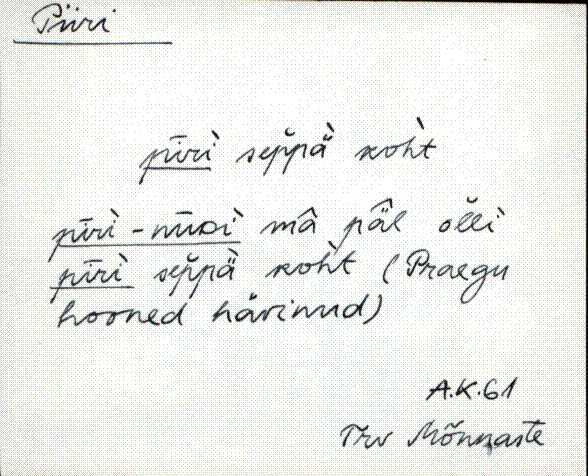 Piiri
pīrì sep̆pä̀ koh̀t
pīrì-nūDì mâ pä̂l ol̆lì
pīrì sep̆pä̀ koh̀t (Praegu
hooned hävinud)
A.K.61
Trv Mõnnaste